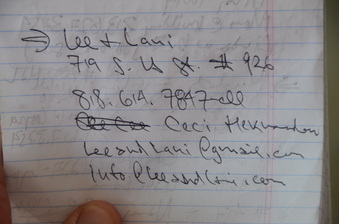 → Lee + Lani
719 S. LA St. # 926
818.614.7847-cell
Ceci Hernandez
leeandlani@gmail.com
info@leeandlani.com